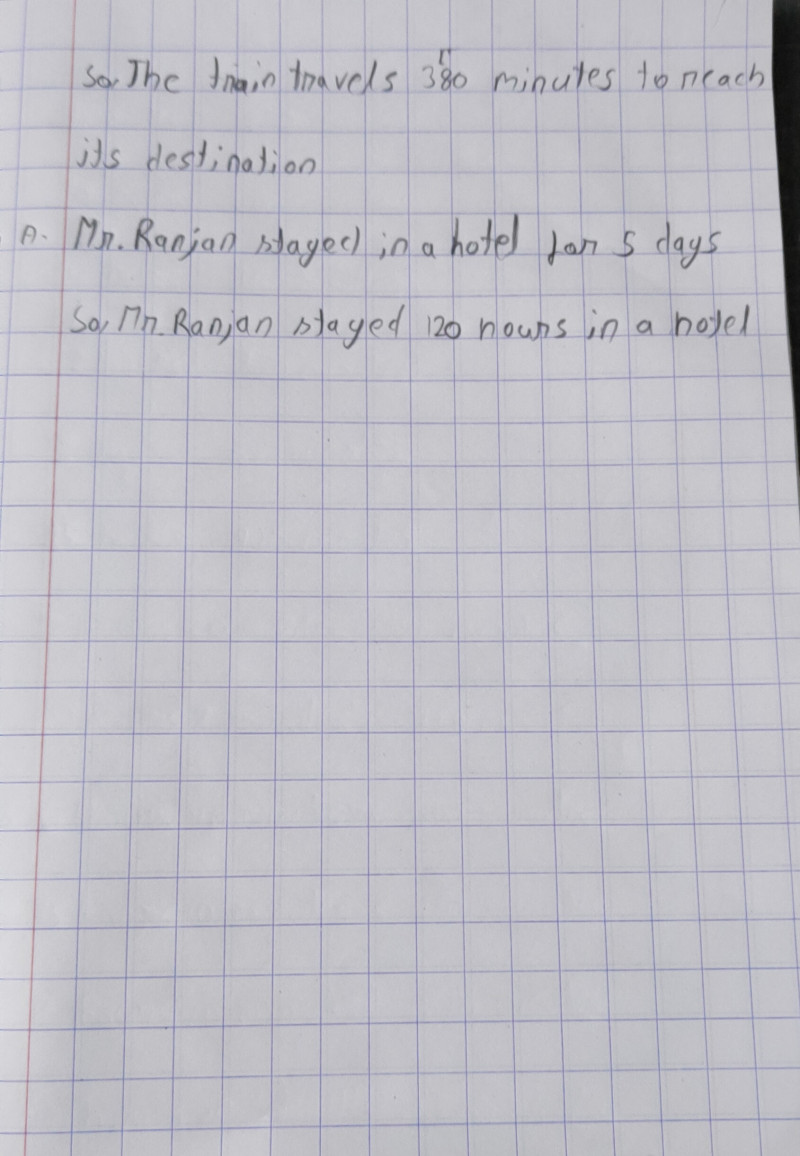 So, The train travels 380 minutes to reach
its destination
A. Mr. Ranjan stayed in a hotel for 5 days
So, Mr. Ranjan stayed 120 hours in a hotel